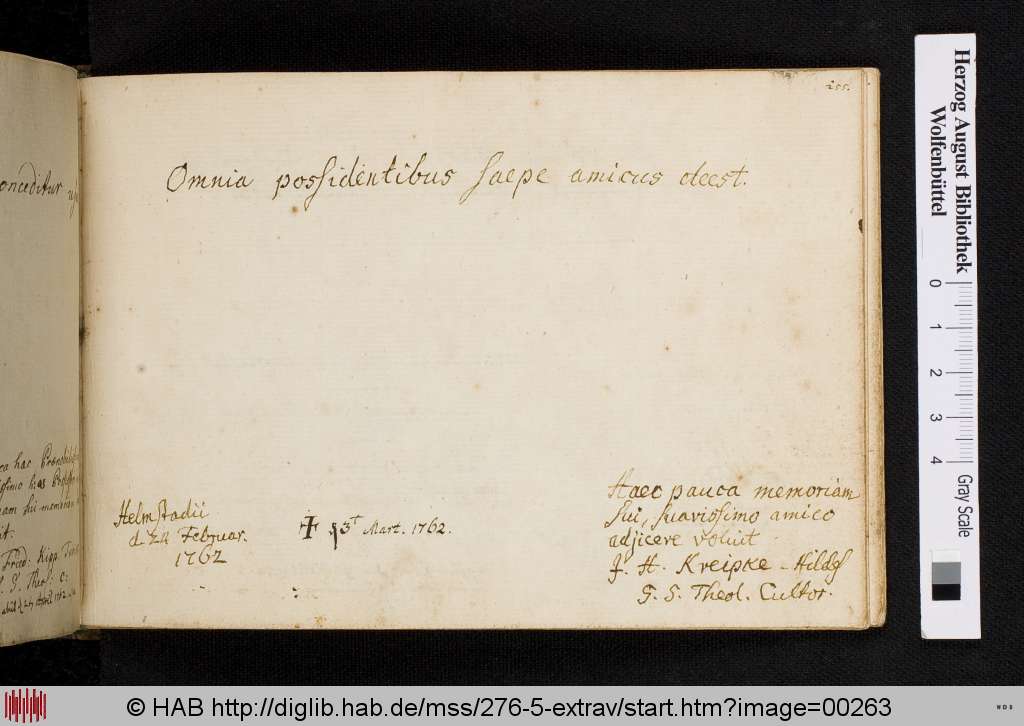 onceditur
255.
Omnia possidentibus saepe amicus deest.
Helmstadii
d. 24 Februar.
1762
Mart. 1762.
Haec pauca memoriam
sui, suavissimo amico
adjicere voluit
J. H. Kreipke - Hildes
S. S. Theol. Cultor.
ca hac
simo has
am sui memoriam
it.
Frid. Kipp
S. Theol. C.
Herzog August Bibliothek
Wolfenbüttel
0 1 2 3 4
Gray Scale
© HAB http://diglib.hab.de/mss/276-5-extrav/start.htm?image=00263
WDB